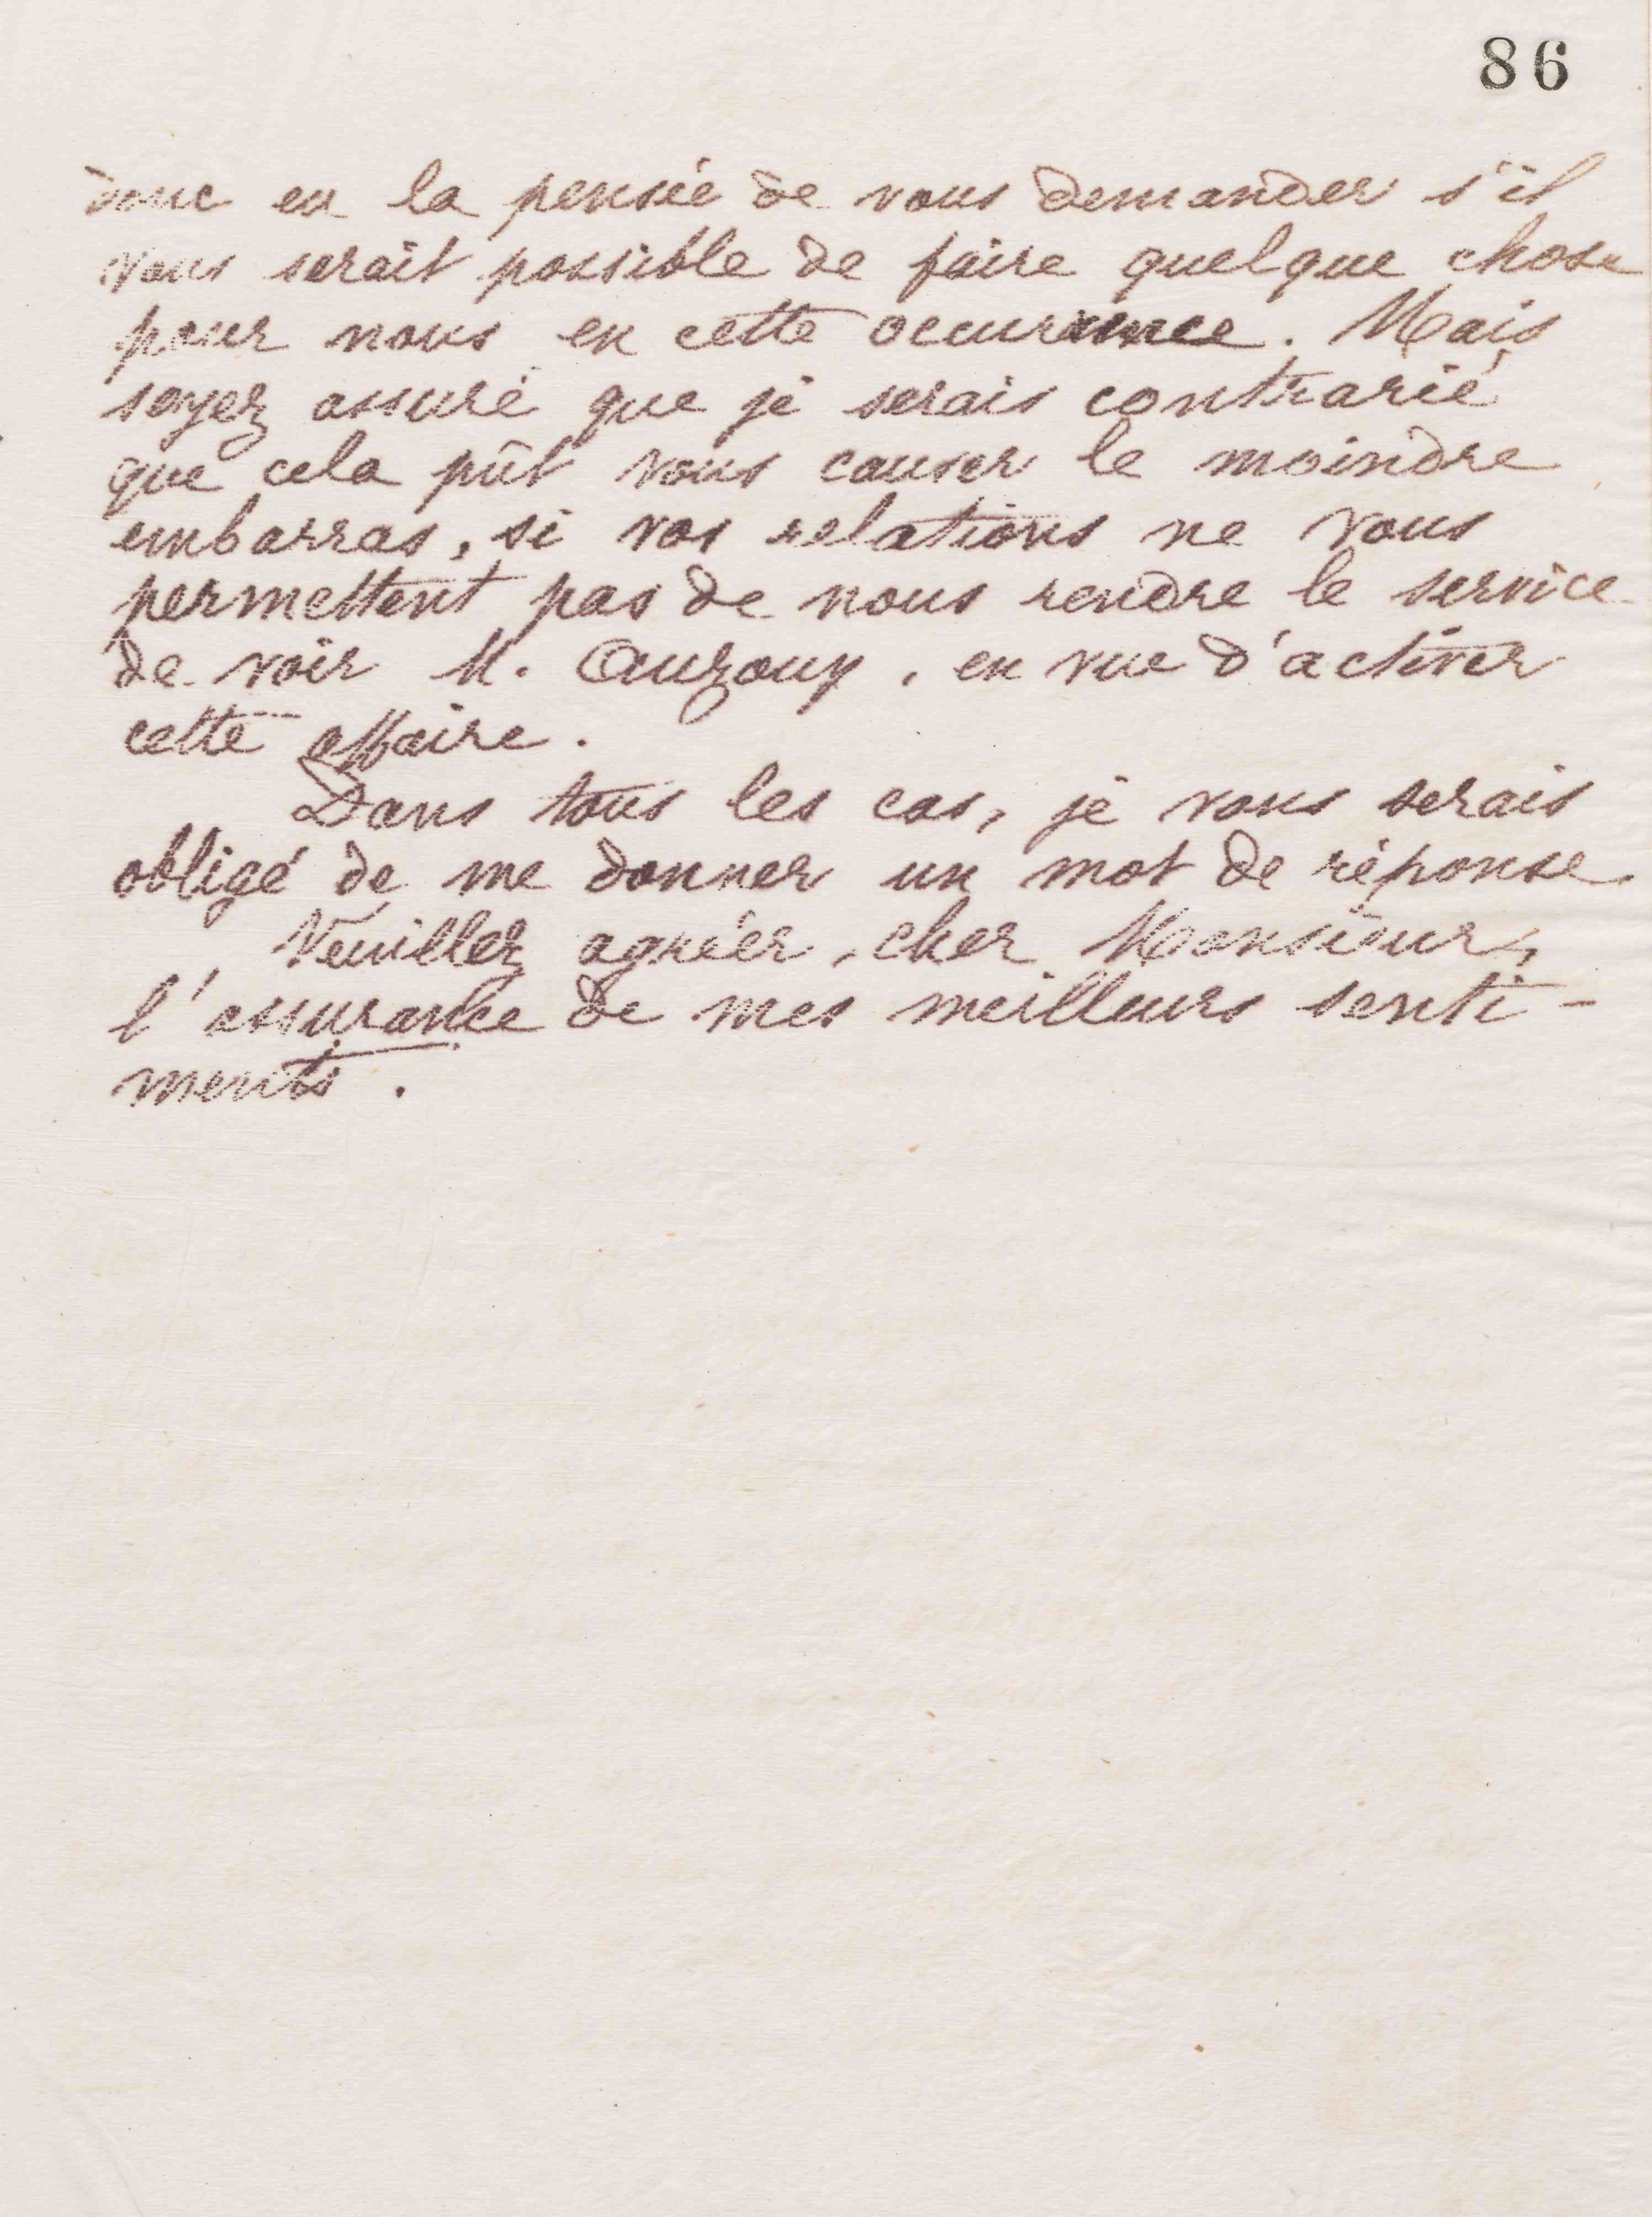 86
donc eu la pensée de vous demander s'il
vous serait possible de faire quelque chose
pour nous en cette occurence. Mais
soyez assuré que je serais contrarié
que cela pût vous causer le moindre
embarras, si vos relations ne vous
permettent pas de nous rendre le service
de voir M. Auzouy, en vue d'activer
cette affaire.
Dans tous les cas, je vous serais
obligé de me donner un mot de réponse.
Veuillez agréer, cher Monsieur,
l'assurance de mes meilleurs senti-
ments.